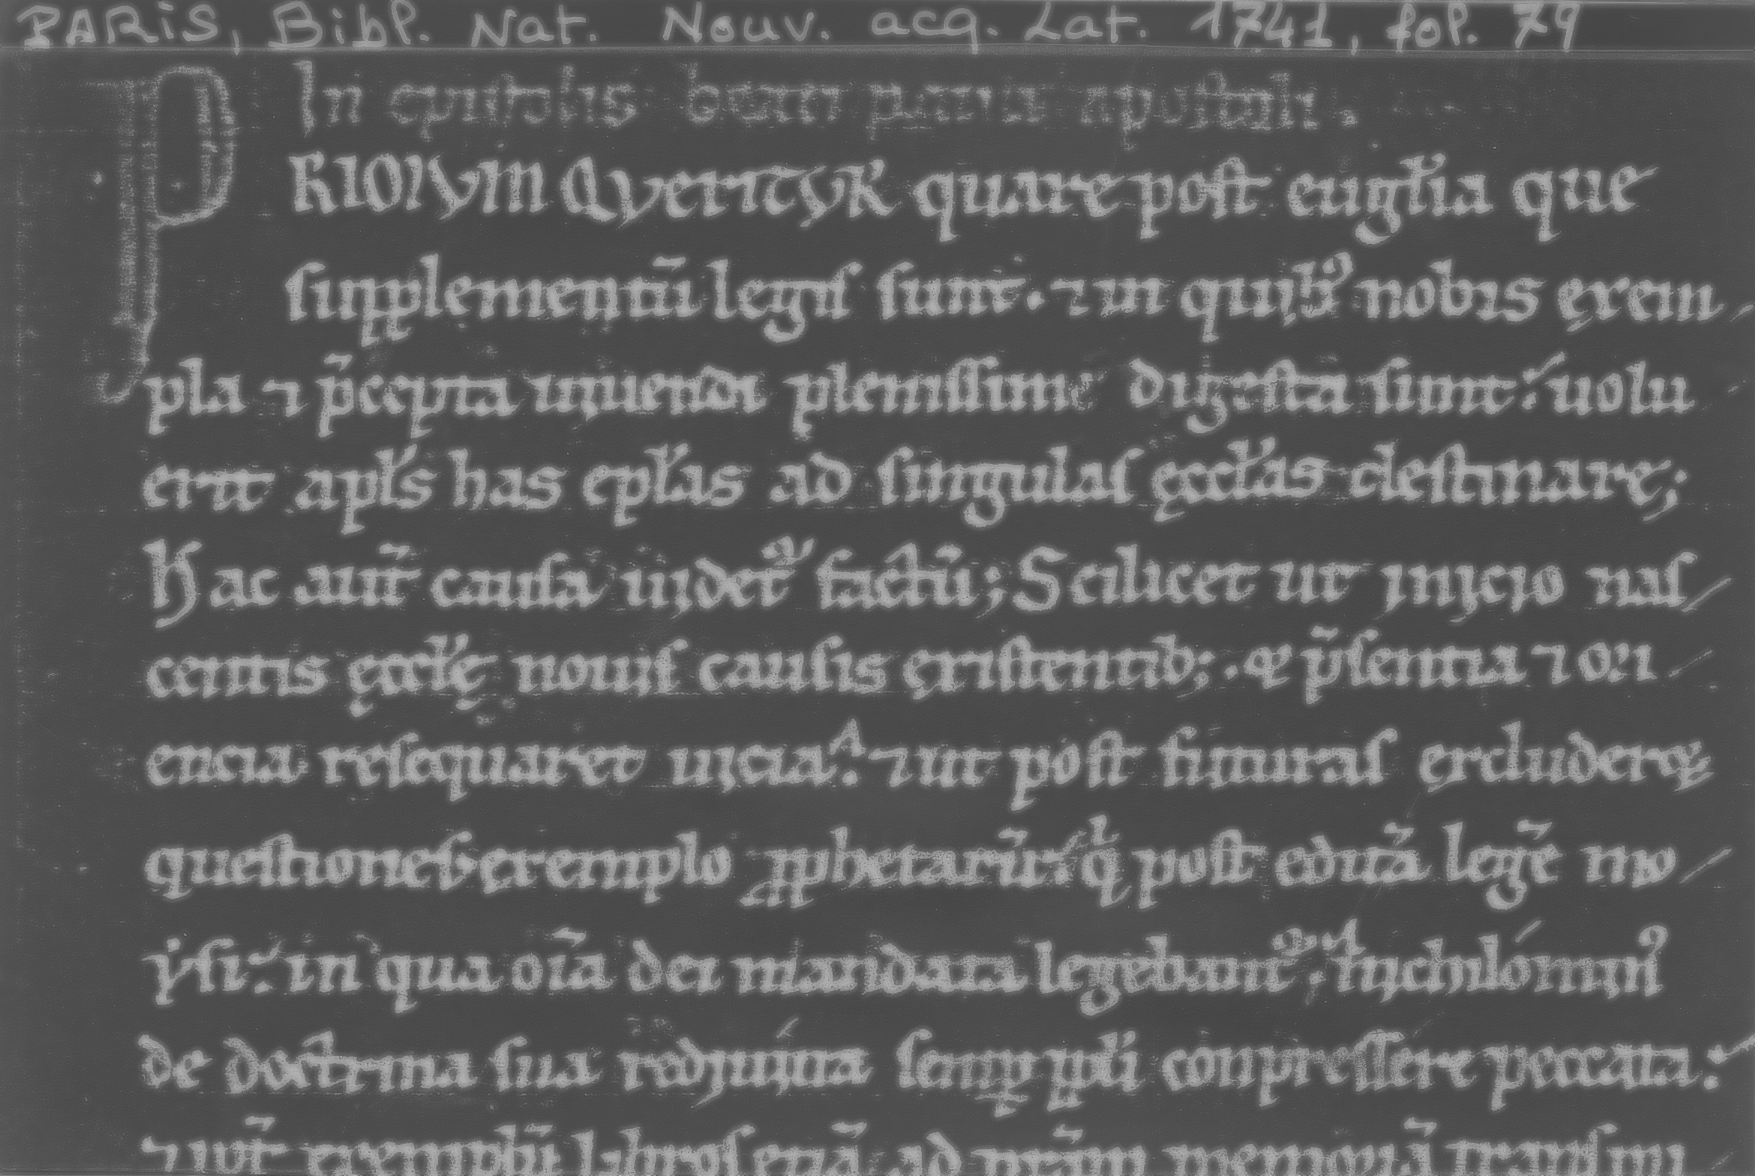 PARIS, Bibl. Nat. Nouv. acq. Lat. 1741, fol. 79
In epistolis beati pauli apostoli.
PRIMUM QUERITUR quare post eugłia que
supplementū legis sunt. ⁊ in quibꝰ nobis exem
pla ⁊ p̄cepta uiuendi plenissime digesta sunt: uolu
erit apłs has epłas ad singulas ęccłas destinare;
Hac aut̄ causa uidet᷑ factū; Scilicet ut inicio nas
centis ęccłę nouis causis existentib; & p̄sentia ⁊ ori
encia resequaret uicia. ⁊ ut post futuras excluderet
questiones exemplo ꝓphetarū. q̄ post editā legē mo
ysi. in qua oīa dei mandata legebant᷑. nichilominꝰ
de doctrina sua rediuiua semꝑ ppłi conpressere peccata.
⁊ ut exemplū libros etiā ad nr̄am memoriā transmi